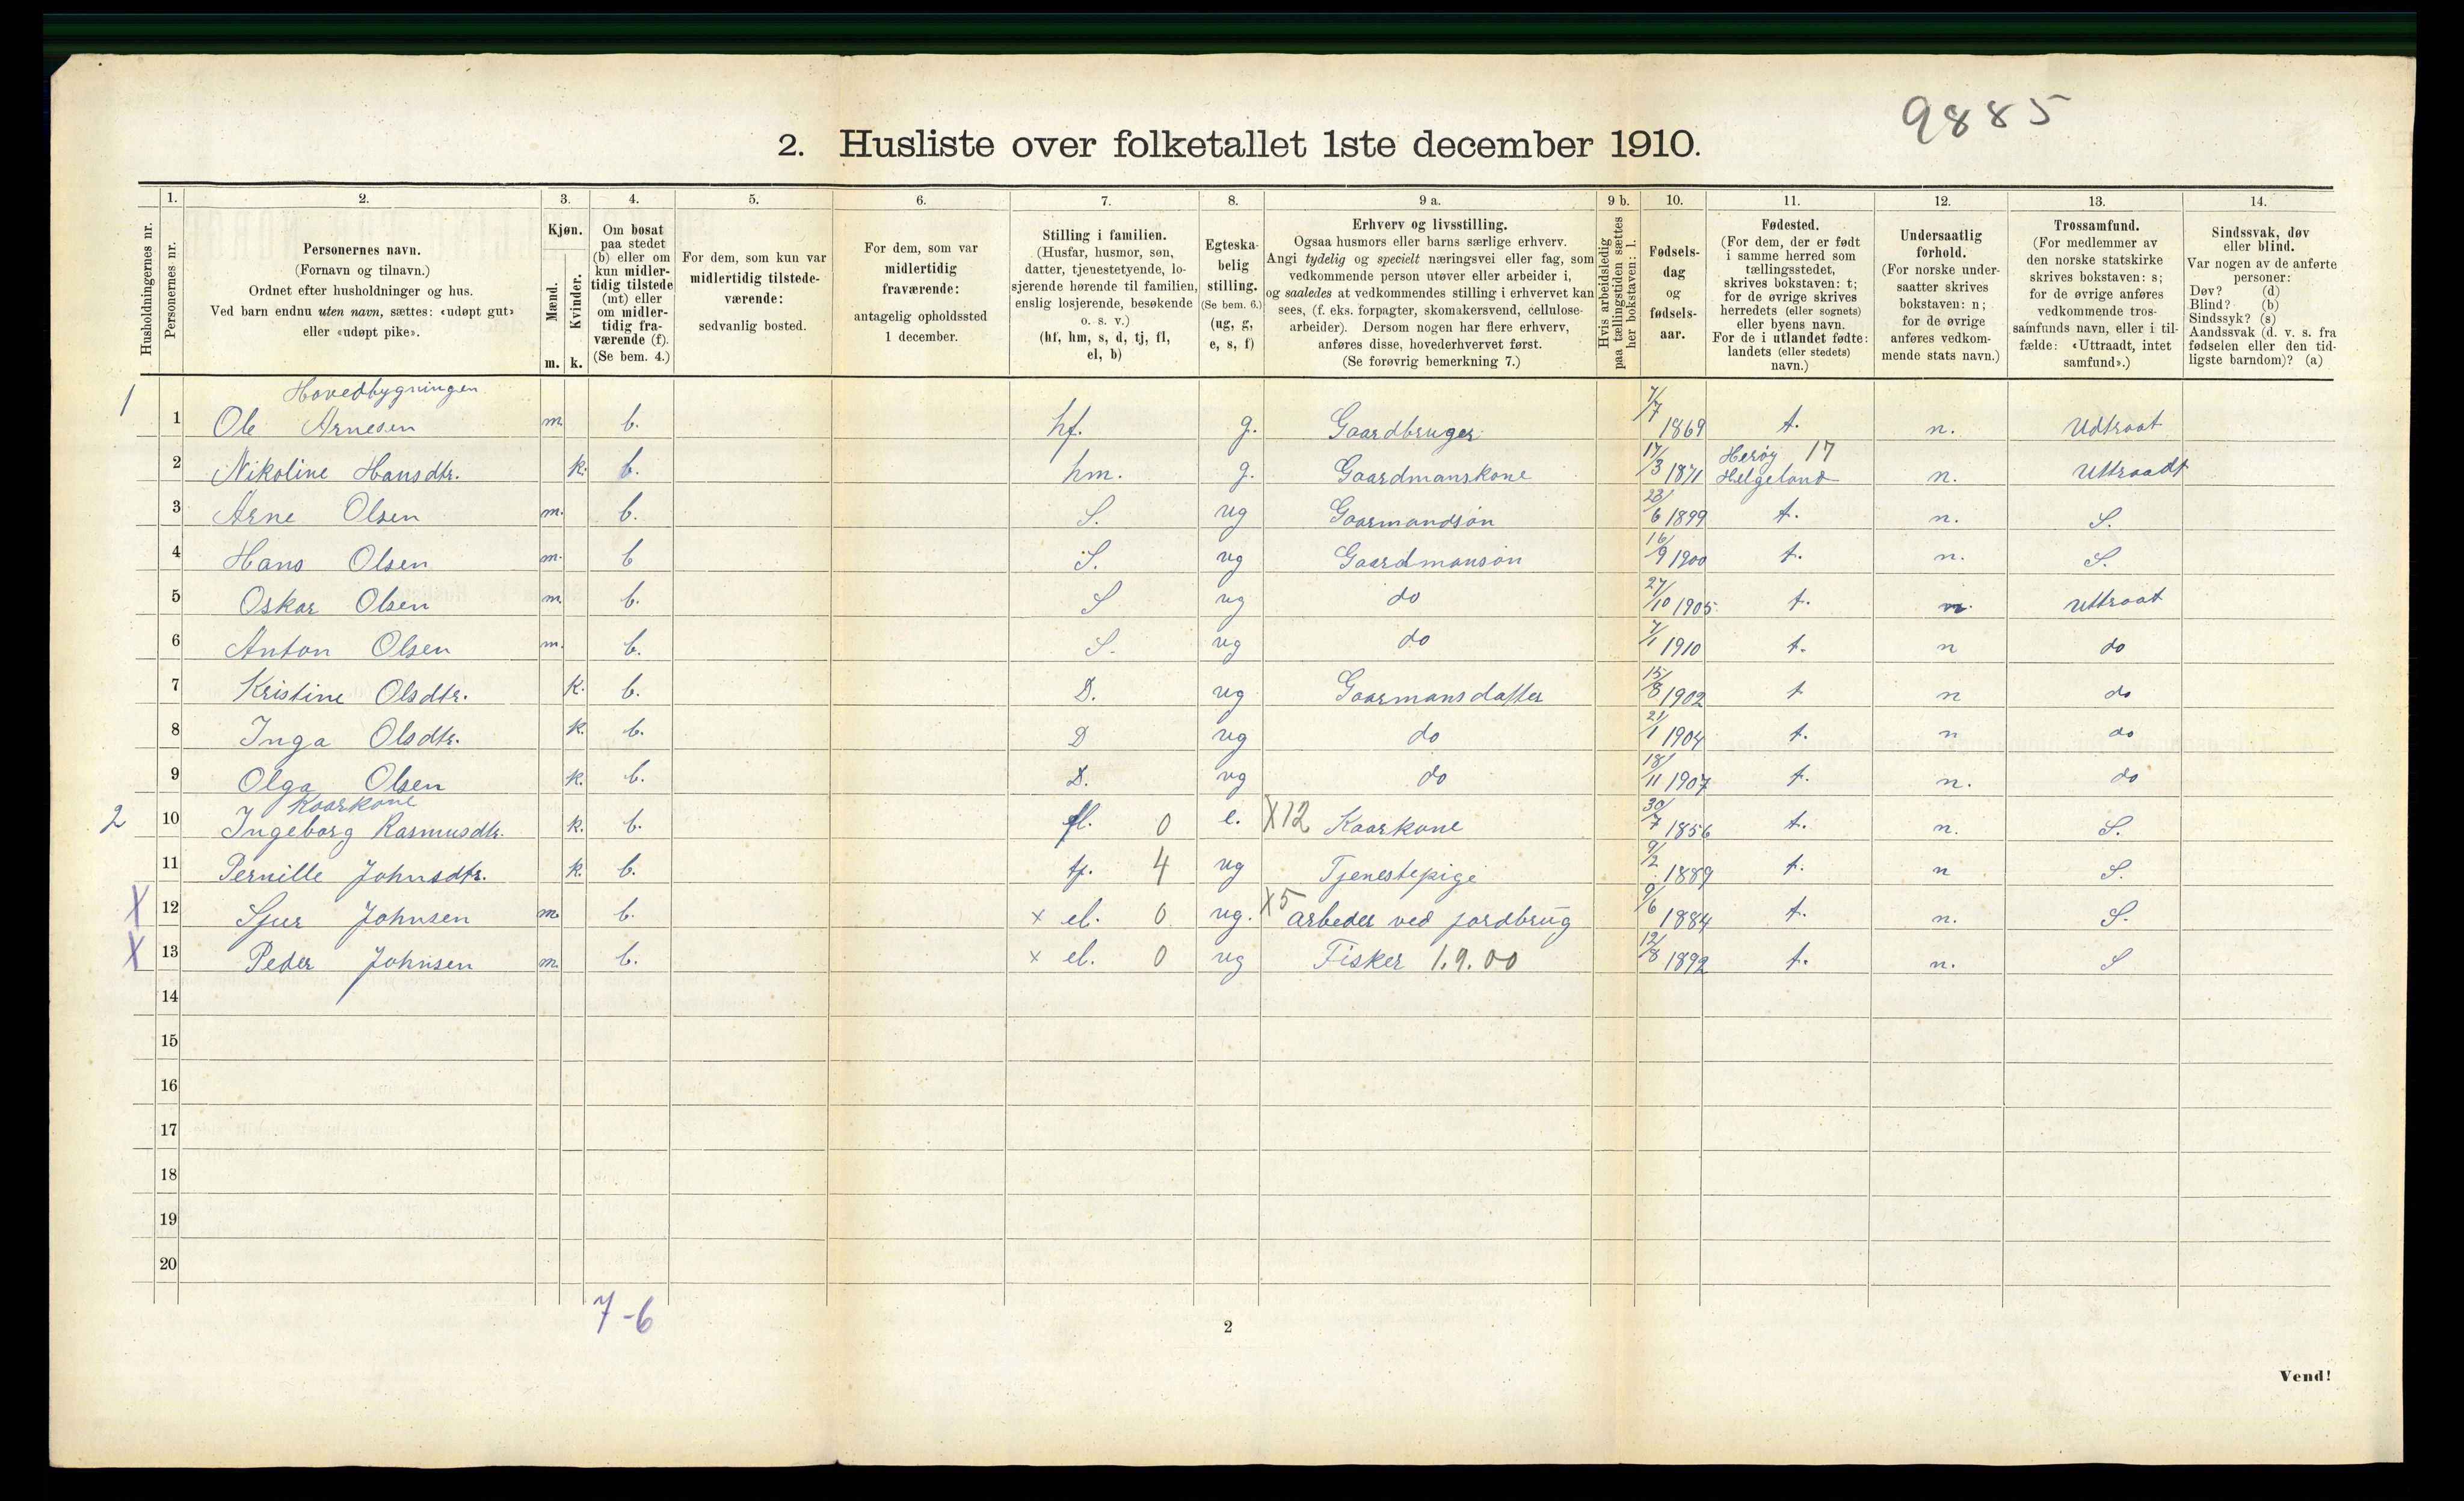 9885
2. Husliste over folketallet 1ste december 1910.
Husholdningernes nr.
1.
Personernes nr.
2.
Personernes navn.
(Fornavn og tilnavn.)
Ordnet efter husholdninger og hus.
Ved barn endnu uten navn, sættes: «udøpt gut»
eller «udøpt pike».
3.
Kjøn.
Mænd.
Kvinder.
m. k.
4.
Om bosat
paa stedet
(b) eller om
kun midler-
tidig tilstede
(mt) eller
om midler-
tidig fra-
værende (f).
(Se bem. 4.)
5.
For dem, som kun var
midlertidig tilstede-
værende:
sedvanlig bosted.
6.
For dem, som var
midlertidig
fraværende:
antagelig opholdssted
1 december.
7.
Stilling i familien.
(Husfar, husmor, søn,
datter, tjenestetyende, lo-
sjerende hørende til familien,
enslig losjerende, besøkende
o. s. v.)
(hf, hm, s, d, tj, fl,
el, b)
8.
Egteska-
belig
stilling.
(Se bem. 6.)
(ug, g,
e, s, f)
9 a.
Erhverv og livsstilling.
Ogsaa husmors eller barns særlige erhverv.
Angi tydelig og specielt næringsvei eller fag, som
vedkommende person utøver eller arbeider i,
og saaledes at vedkommendes stilling i erhvervet kan
sees, (f. eks. forpagter, skomakersvend, cellulose-
arbeider). Dersom nogen har flere erhverv,
anføres disse, hovederhvervet først.
(Se forøvrig bemerkning 7.)
9 b.
Hvis arbeidsledig
paa tællingstiden sættes
her bokstaven: l.
10.
Fødsels-
dag
og
fødsels-
aar.
11.
Fødested.
(For dem, der er født
i samme herred som
tællingsstedet,
skrives bokstaven: t;
for de øvrige skrives
herredets (eller sognets)
eller byens navn.
For de i utlandet fødte:
landets (eller stedets)
navn.)
12.
Undersaatlig
forhold.
(For norske under-
saatter skrives
bokstaven: n;
for de øvrige
anføres vedkom-
mende stats navn.)
13.
Trossamfund.
(For medlemmer av
den norske statskirke
skrives bokstaven: s;
for de øvrige anføres
vedkommende tros-
samfunds navn, eller i til-
fælde: «Uttraadt, intet
samfund».)
14.
Sindssvak, døv
eller blind.
Var nogen av de anførte
personer:
Døv? (d)
Blind? (b)
Sindssyk? (s)
Aandssvak (d. v. s. fra
fødselen eller den tid-
ligste barndom)? (a)
Hovedbygningen
1 1 Ole Arnesen m. b. hf. g. Gaardbruger 7/7 1869 t. n. Udtraat
2 Nikoline Hansdtr. k. b. hm. g. Gaardmanskone 17/3 1871 Herøy 17 Helgeland n. Uttraadt
3 Arne Olsen m. b. S. ug Gaarmandsøn 23/6 1899 t. n. S.
4 Hans Olsen m. b S. ug Gaardmansøn 16/9 1900 t. n. S.
5 Oskar Olsen m. b. S ug do 27/10 1905 t. n. Uttraat
6 Anton Olsen m. b. S. ug do 7/1 1910 t. n do
7 Kristine Olsdtr. k. b. D. ug Gaarmansdatter 15/8 1902 t n do
8 Inga Olsdtr. k. b. D ug do 21/1 1904 t. n do
9 Olga Olsen k. b. D. ug do 18/11 1907 t. n. do
Kaarkone
2 10 Ingeborg Rasmusdtr. k. b. fl. 0 e. X12 Kaarkone 30/7 1856 t. n. S.
11 Pernille Johnsdtr. k. b. tj. 4 ug Tjenestepige 9/2 1889 t. n S.
X 12 Sjur Johnsen m. b. x el. 0 ug. X5 Arbeder ved jordbrug 9/6 1884 t. n. S.
X 13 Peder Johnsen m. b. x el. 0 ug Fisker 1.9.00 12/8 1892 t. n. S
14
15
16
17
18
19
20
7-6
2
Vend!